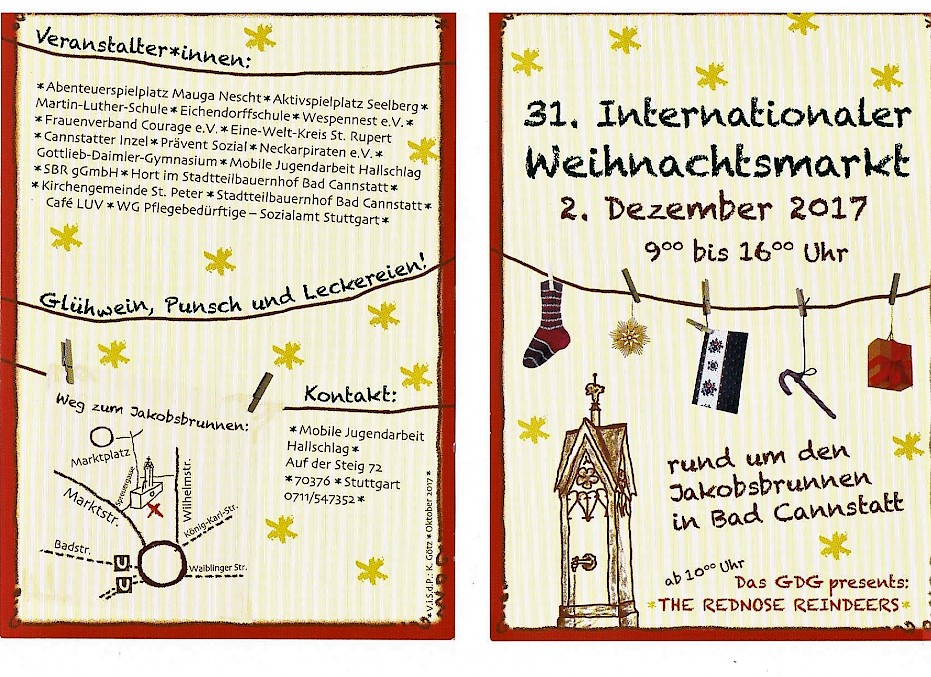 Veranstalter*innen:
*Abenteuerspielplatz Mauga Nescht*Aktivspielplatz Seelberg*
Martin-Luther-Schule*Eichendorffschule*Wespennest e.V.*
*Frauenverband Courage e.V.*Eine-Welt-Kreis St. Rupert
*Cannstatter Inzel*Prävent Sozial*Neckarpiraten e.V.*
Gottlieb-Daimler-Gymnasium*Mobile Jugendarbeit Hallschlag
*SBR gGmbH*Hort im Stadtteilbauernhof Bad Cannstatt*
*Kirchengemeinde St. Peter*Stadtteilbauernhof Bad Cannstatt*
Café LUV*WG Pflegebedürftige – Sozialamt Stuttgart*
Glühwein, Punsch und Leckereien!
Weg zum Jakobsbrunnen:
Marktplatz
Spreuergasse
Marktstr.
Wilhelmstr.
König-Karl-Str.
Badstr.
U
U
Waiblinger Str.
Kontakt:
*Mobile Jugendarbeit
Hallschlag*
Auf der Steig 72
*70376*Stuttgart
0711/547352*
*V.i.S.d.P.: K. Götz*Oktober 2017*
31. Internationaler
Weihnachtsmarkt
2. Dezember 2017
9⁰⁰ bis 16⁰⁰ Uhr
rund um den
Jakobsbrunnen
in Bad Cannstatt
ab 10⁰⁰ Uhr
Das GDG presents:
*THE REDNOSE REINDEERS*